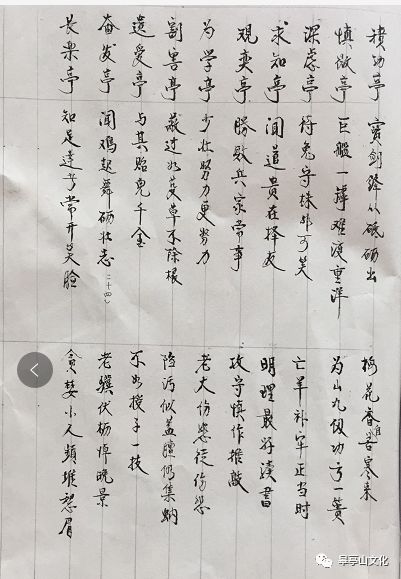 积功亭 宝剑锋从砥砺出 梅花香自苦寒来
慎微亭 巨艇一罅难渡重洋 为山九仞功亏一篑
深虑亭 待兔守株非可笑 亡羊补牢正当时
求知亭 闻道贵在择友 明理最好读书
观奕亭 胜败兵家常事 攻守慎作推敲
为学亭 少壮努力更努力 老大伤悲徒伤悲
割害亭 蔽过如芟草不除根 隐污似盖膻仍集蚋
遗爱亭 与其贻儿千金 不如授子一技
奋发亭 闻鸡起舞砺壮志(二十四) 老骥伏枥悼晚景
长乐亭 知足达者常开笑脸 贪婪小人频堆愁眉
皋亭山文化